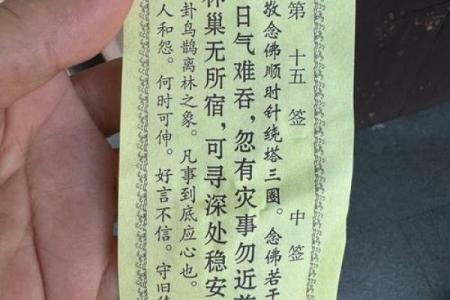 第十五签 中签
敬念佛顺时针绕塔三圈。念佛若干
日气难吞，忽有灾事勿近前
林巢无所宿，可寻深处稳安
卦鸟鹊离林之象。凡事到底应心也。
人和怨。何时可伸。好言不信。守旧待